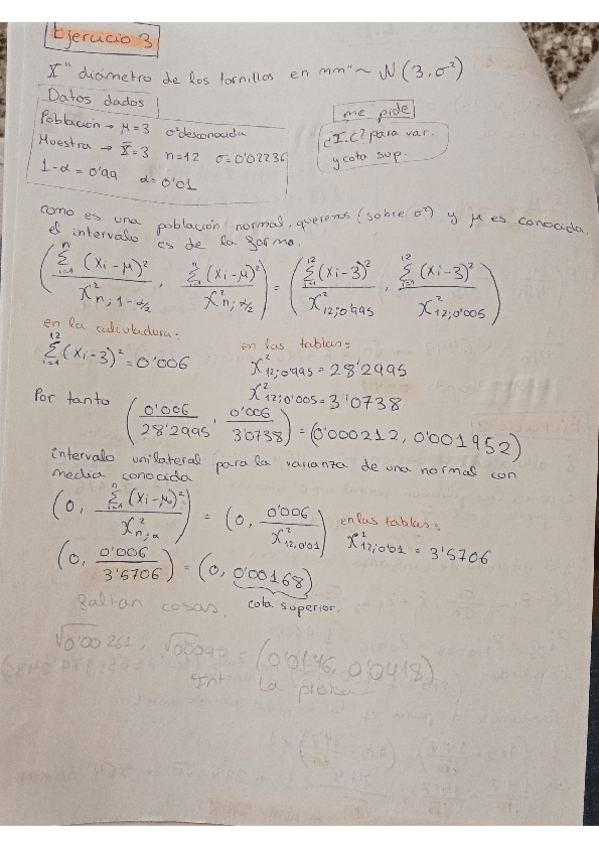 Ejercicio 3
X "diámetro de los tornillos en mm" ~ N(3,σ²)
Datos dados
Población → μ=3 σ² desconocida
Muestra → x̄=3 n=12 σ=0'02236
1-α=0'99 α=0'01
me pide
¿I.C? para var.
y cota sup.
como es una población normal, queremos (sobre σ²) y μ es conocida.
el intervalo es de la forma.
(Σⁿᵢ₌₁ (xi-μ)² / X²n;1-α/2 , Σⁿᵢ₌₁ (xi-μ)² / X²n;α/2) = (Σ¹²ᵢ₌₁ (xi-3)² / X²12;0'995 , Σ¹²ᵢ₌₁ (xi-3)² / X²12;0'005)
en la calculadora.
Σ¹²ᵢ₌₁ (xi-3)² = 0'006
en las tablas:
X²12;0'995 = 28'2995
X²12;0'005 = 3'0738
Por tanto (0'006 / 28'2995 , 0'006 / 3'0738) = (0'000212, 0'001952)
intervalo unilateral para la varianza de una normal con
media conocida
(0, Σⁿᵢ₌₁ (xi-μ)² / X²n;α) = (0, 0'006 / X²12,0'01) en las tablas: X²12;0'01 = 3'5706
(0, 0'006 / 3'5706) = (0, 0'00168)
faltan cosas. cota superior.
√0'00261, = (0'0146, 0'0418)
la